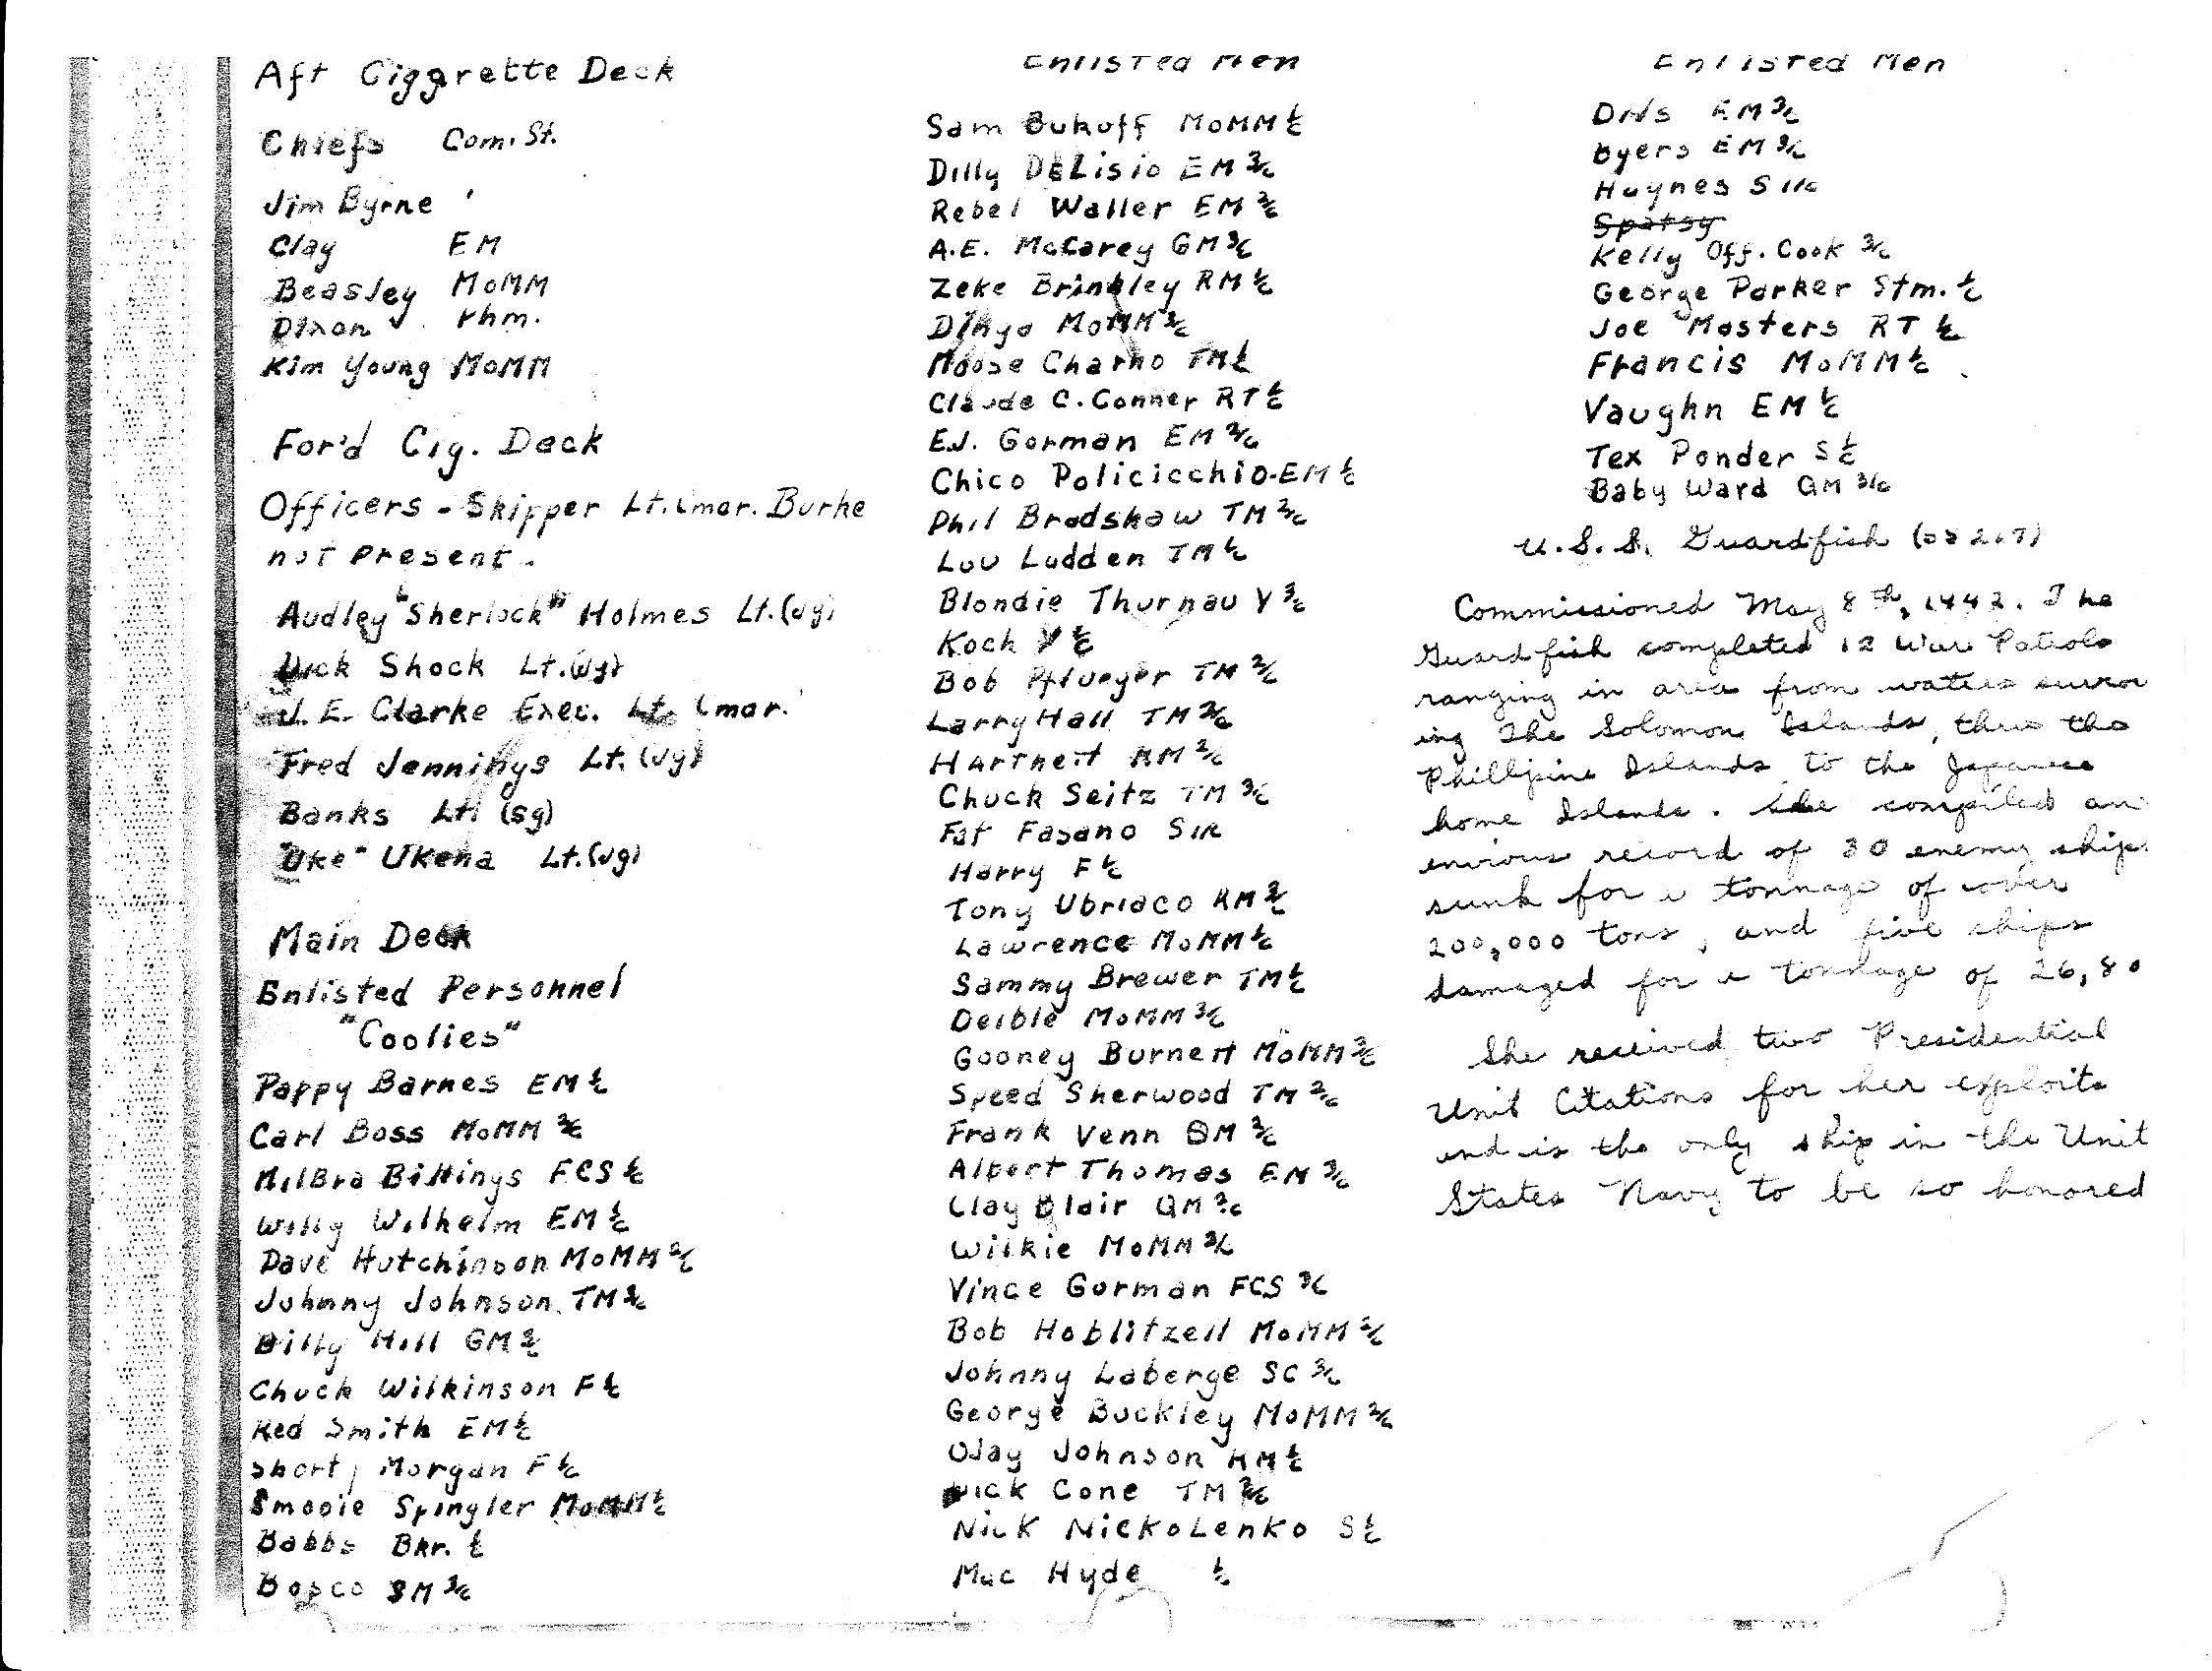 Aft Ciggrette Deck
Chiefs Com. St.
Jim Byrne '
Clay EM
Beasley MoMM
Dixon Phm.
Kim Young MoMM
For'd Cig. Deck
Officers - Skipper Lt. Cmdr. Burke
not Present.
Audley "Sherlock" Holmes Lt. (jg)
Shock Lt. (jg)
J. E. Clarke Exec. Lt. Cmdr.
Fred Jennings Lt. (jg)
Banks Lt. (sg)
"Uke" Ukena Lt. (jg)
Main Deck
Enlisted Personnel
"Coolies"
Pappy Barnes EM 1/c
Carl Boss MoMM 2/c
Milbra Billings FCS 1/c
Willy Wilhelm EM 1/c
Dave Hutchinson MoMM 2/c
Johnny Johnson TM 3/c
Billy Hill GM 2/c
Chuck Wilkinson F 1/c
Red Smith EM 1/c
Shorty Morgan F 1/c
Smooie Spingler MoMM 1/c
Babbs Bkr. 1/c
Bosco SM 3/c
Enlisted Men
Sam Bukoff MoMM 1/c
Dilly DeLisio EM 3/c
Rebel Waller EM 2/c
A.E. McCarey GM 3/c
Zeke Brinkley RM 1/c
Dingo MoMM 2/c
Moose Charno TM 1/c
Claude C. Conner RT 1/c
E.J. Gorman EM 2/c
Chico Policicchio - EM 1/c
Phil Bradshaw TM 2/c
Lou Ludden TM 1/c
Blondie Thurnau Y 3/c
Koch Y 1/c
Bob Pflueger TM 2/c
Larry Hall TM 2/c
Hartnett RM 2/c
Chuck Seitz TM 3/c
Fat Fasano S1/c
Harry F 1/c
Tony Ubriaco RM 2/c
Lawrence MoMM 1/c
Sammy Brewer TM 1/c
Deible MoMM 3/c
Gooney Burnett MoMM 3/c
Speed Sherwood TM 2/c
Frank Venn QM 2/c
Albert Thomas EM 3/c
Clay Blair QM 2/c
Wilkie MoMM 3/c
Vince Gorman FCS 3/c
Bob Hoblitzell MoMM 2/c
Johnny Laberge SC 3/c
George Buckley MoMM 2/c
OJay Johnson RM 1/c
Cone TM 2/c
Nick Nickolenko S 1/c
Mac Hyde 1/c
Enlisted Men
EM 3/c
Byers EM 3/c
Haynes S 1/c
Spatsy
Kelly Off. Cook 3/c
George Parker Stm. 1/c
Joe Masters RT 1/c
Francis MoMM 1/c
Vaughn EM 1/c
Tex Ponder S 1/c
Baby Ward QM 3/c
U.S.S. Guardfish (SS 217)
Commissioned May 8th, 1942. The
Guardfish completed 12 War Patrols
ranging in area from waters surrou
ing The Solomon Islands, thru the
Phillipine Islands to the Japanese
home Islands. She compiled an
envious record of 30 enemy ships
sunk for a tonnage of over
200,000 tons, and five ships
damaged for a tonnage of 26,80
She received two Presidential
Unit Citations for her exploits
and is the only ship in the Unit
States Navy to be so honored